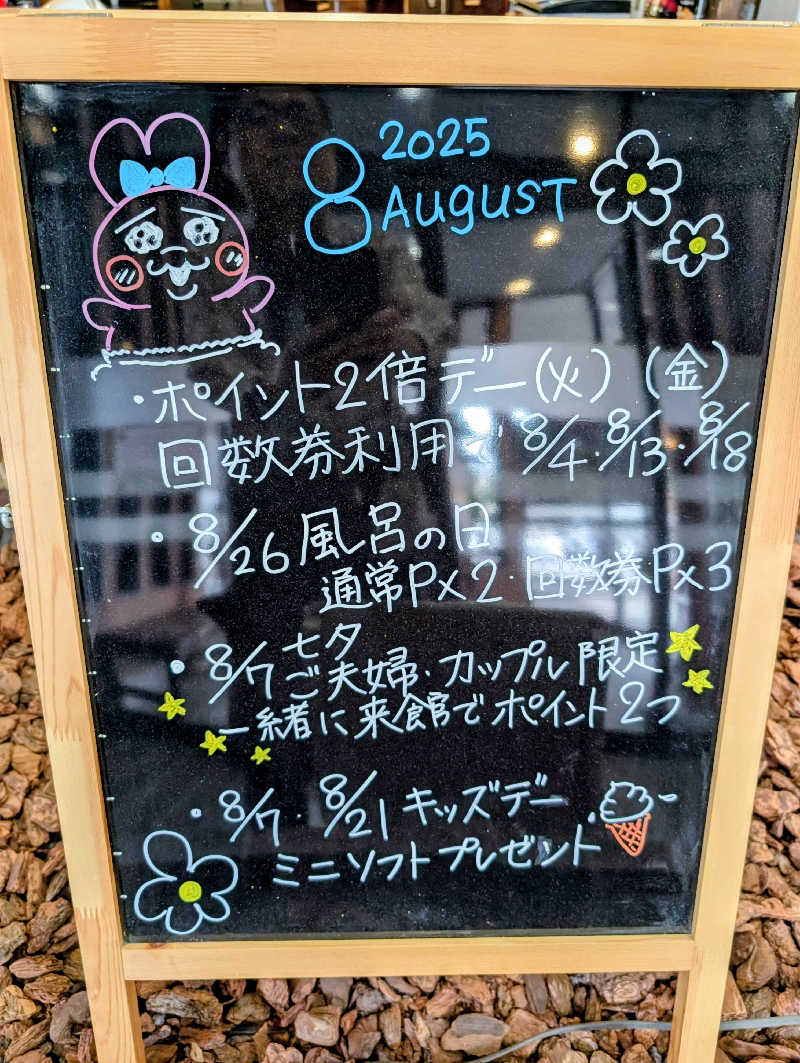 2025
8 AUgUST
・ポイント2倍デー(火)(金)
回数券利用で 8/4・8/13・8/18
・8/26 風呂の日
通常P×2・回数券P×3
・8/7 七夕
ご夫婦・カップル限定
一緒に来館でポイント2つ
・8/7・8/21 キッズデー
ミニソフトプレゼント